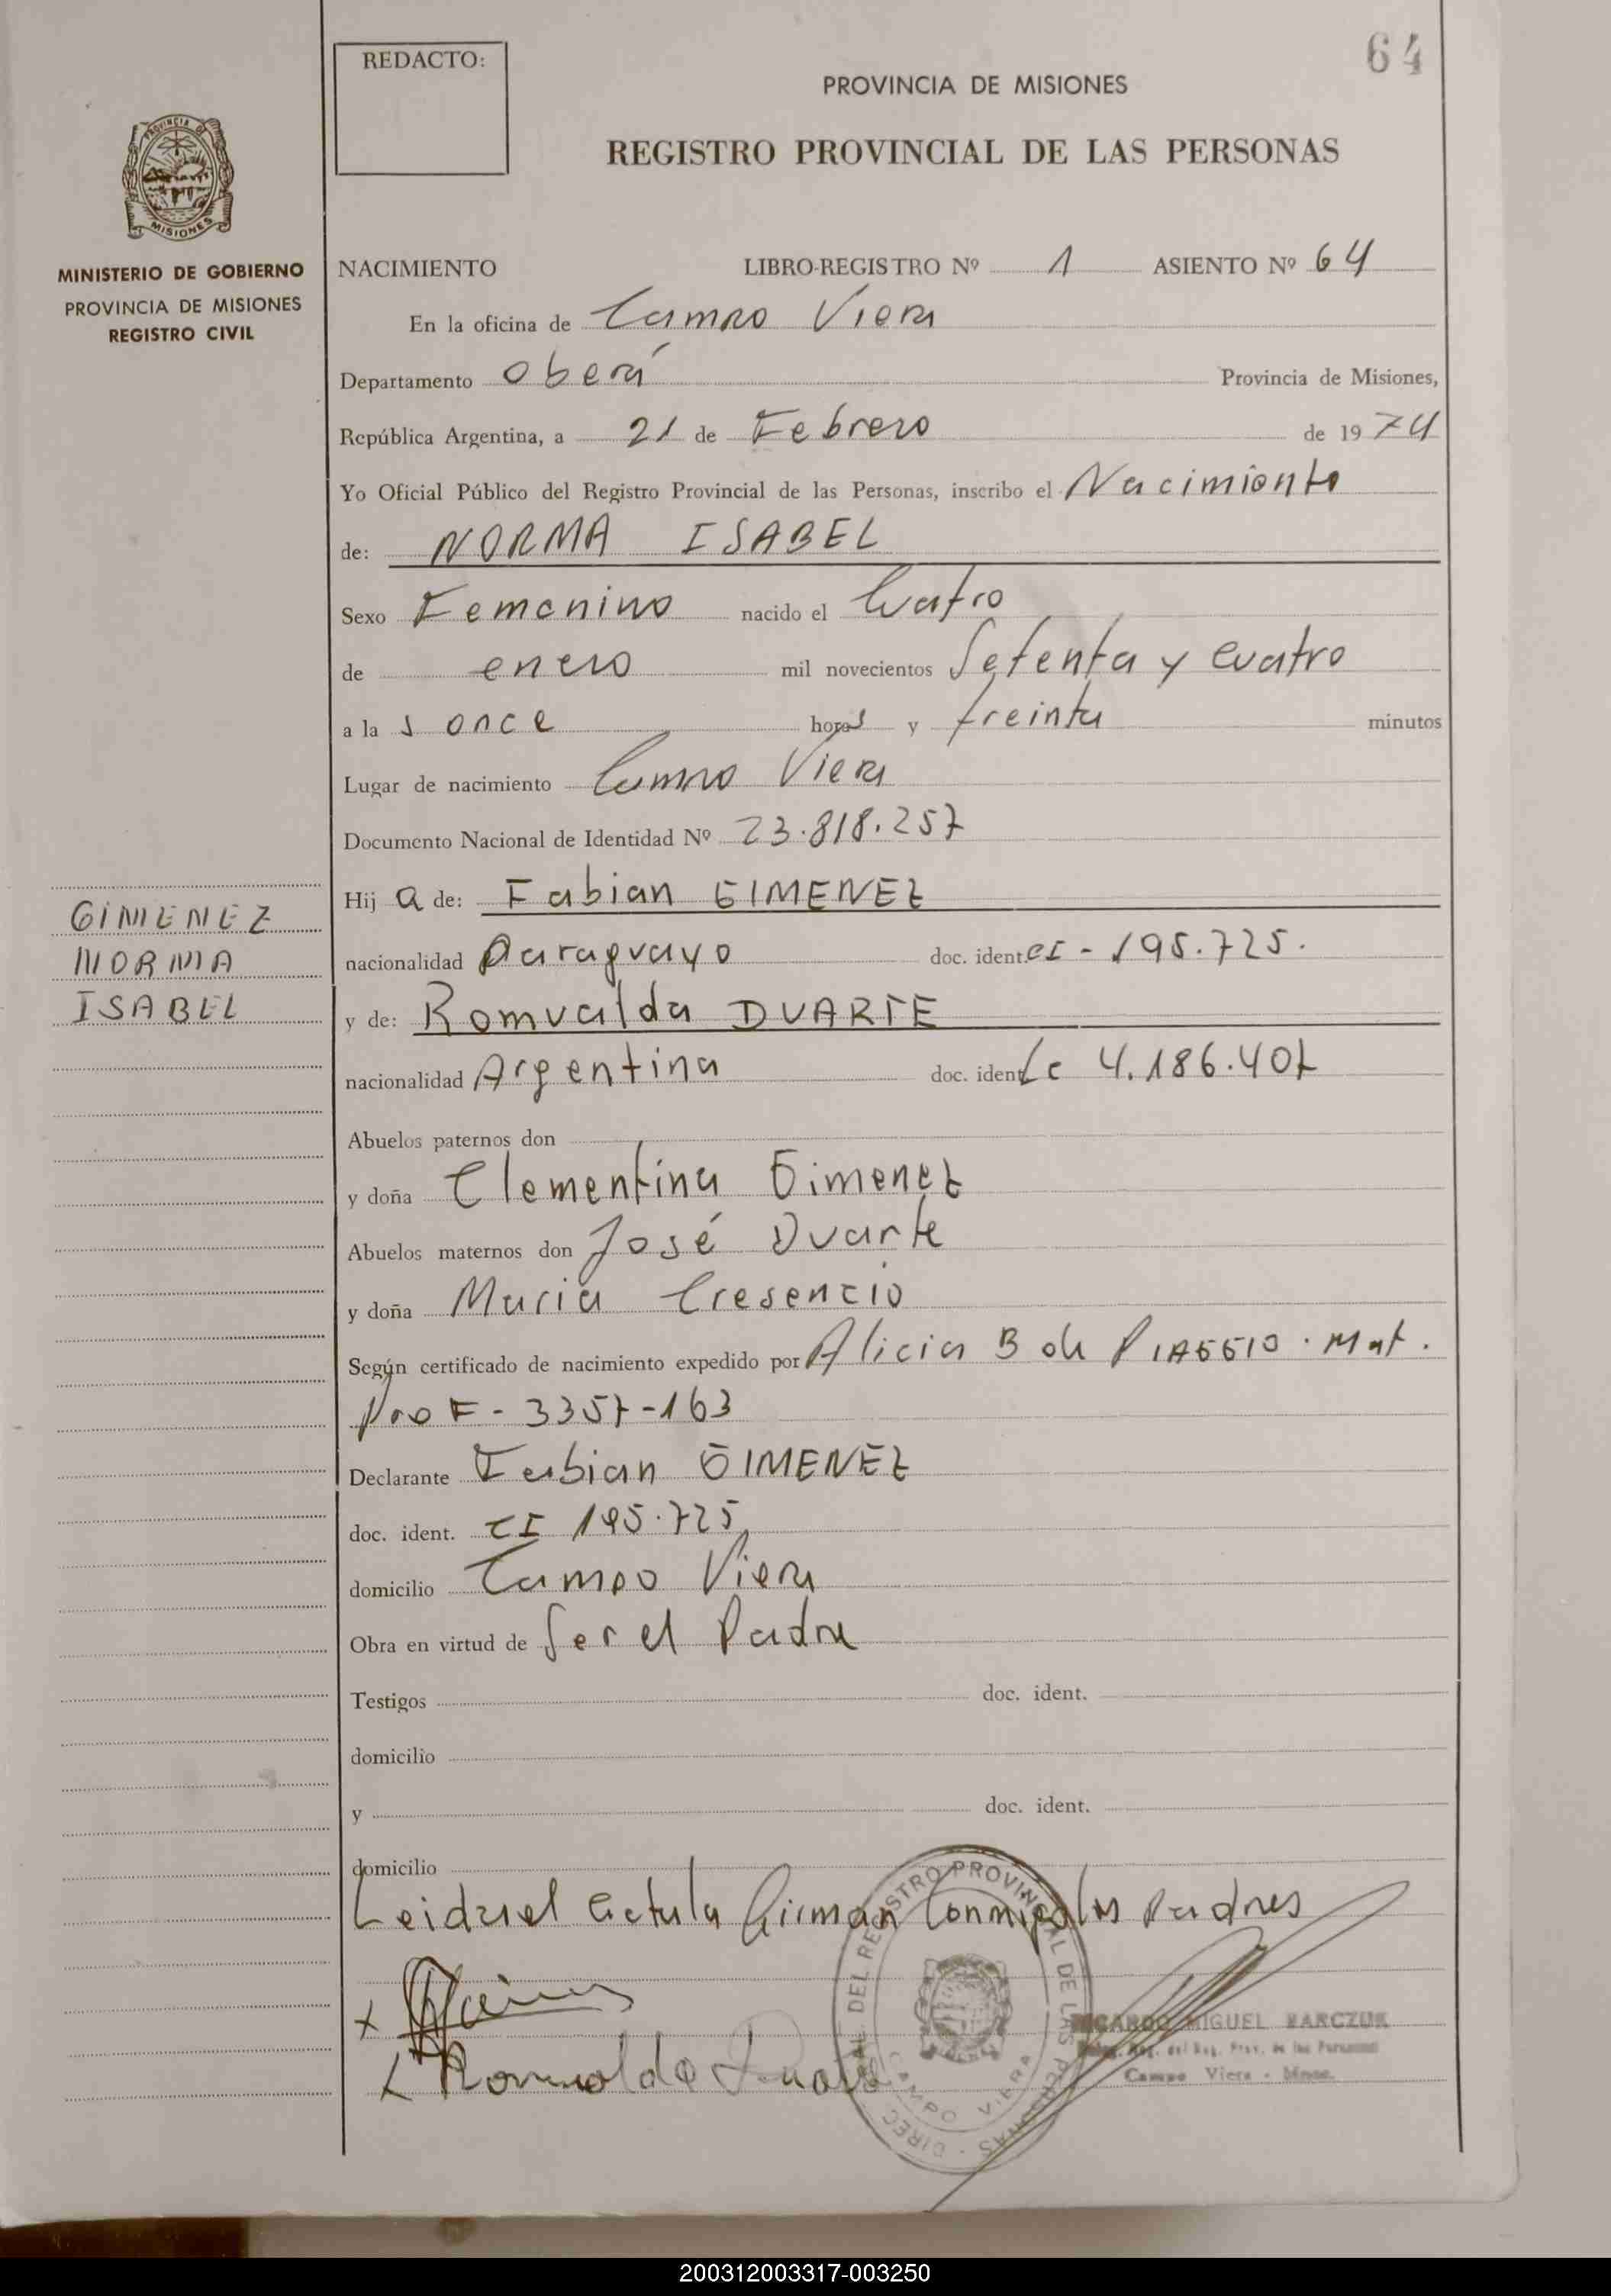 64
REDACTO:
PROVINCIA DE MISIONES
REGISTRO PROVINCIAL DE LAS PERSONAS
PROVINCIA DE
MISIONES
MINISTERIO DE GOBIERNO
PROVINCIA DE MISIONES
REGISTRO CIVIL
NACIMIENTO LIBRO-REGISTRO Nº 1 ASIENTO Nº 64
En la oficina de Campo Viera
Departamento Oberá Provincia de Misiones,
República Argentina, a 21 de Febrero de 1974
Yo Oficial Público del Registro Provincial de las Personas, inscribo el Nacimiento
de: NORMA ISABEL
Sexo Femenino nacido el Cuatro
de enero mil novecientos Setenta y cuatro
a la s once horas y treinta minutos
Lugar de nacimiento Campo Viera
Documento Nacional de Identidad Nº 23.818.257
Hij a de: Fabian GIMENEZ
GIMENEZ
NORMA
ISABEL
nacionalidad Paraguayo doc. ident. CI - 195.725.
y de: Romualda DUARTE
nacionalidad Argentina doc. ident. Lc 4.186.407
Abuelos paternos don
y doña Clementina Gimenez
Abuelos maternos don José Duarte
y doña Maria Cresencio
Según certificado de nacimiento expedido por Alicia B de PIAGGIO. Mat.
Prof - 3357-163
Declarante Fabian GIMENEZ
doc. ident. CI 195.725
domicilio Campo Viera
Obra en virtud de Ser el Padre
Testigos doc. ident.
domicilio
y doc. ident.
domicilio
Leida el Acta la firman Conmigo los Padres
X
X Romualda Duarte
DIREC. GRAL. DEL REGISTRO PROVINCIAL DE LAS PERSONAS
CAMPO VIERA
RICARDO MIGUEL KARCZUK
Reg. Prov. de las Personas
Campo Viera - Mnes.
200312003317-003250